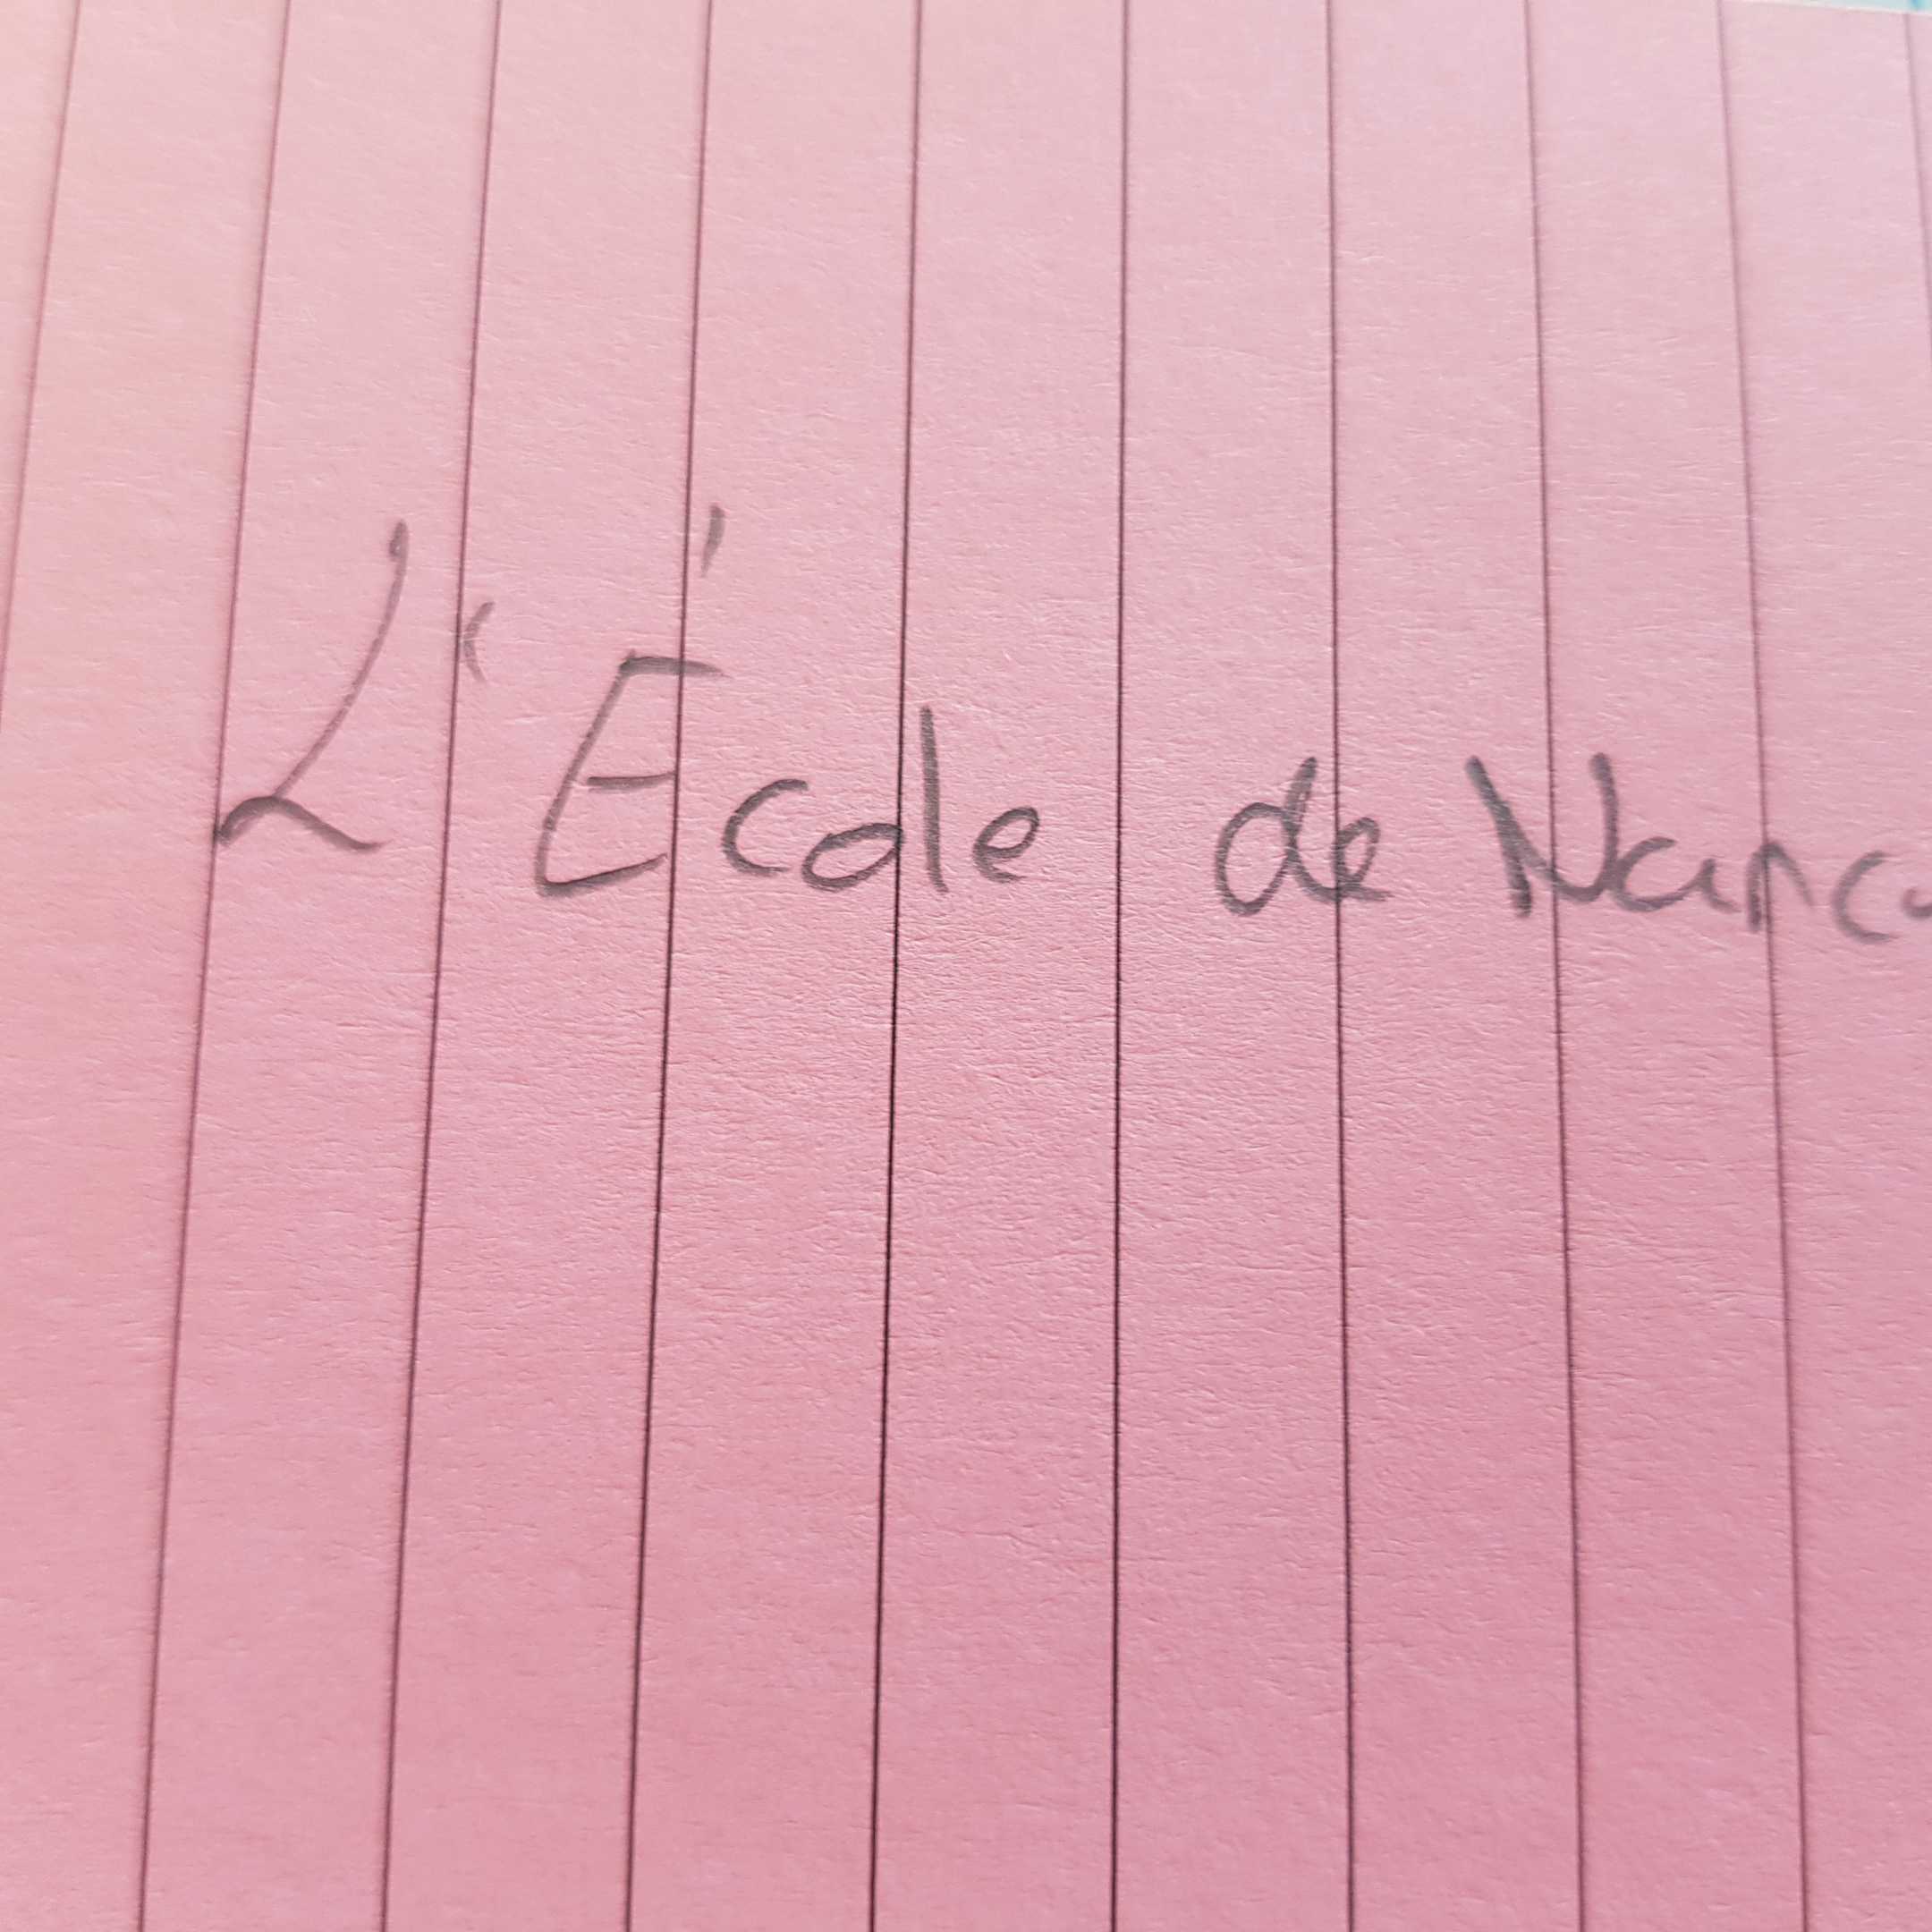 L'École de Nanc